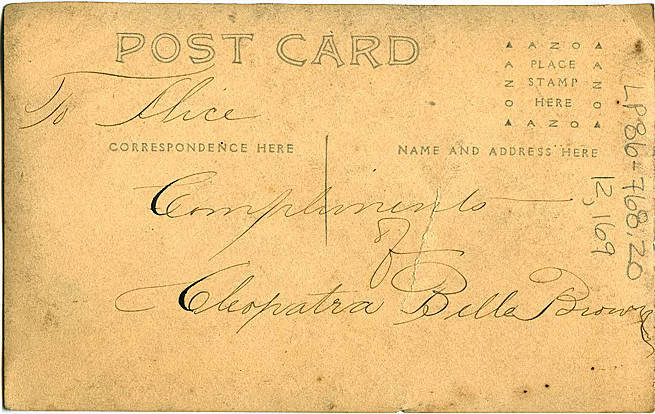 POST CARD
▲ A Z O ▲
A PLACE A
N STAMP Z
O HERE O
▲ A Z O ▲
To Alice
CORRESPONDENCE HERE
NAME AND ADDRESS HERE
Compliments
of
Cleopatra Belle Brown
LP86-768,20
12,169